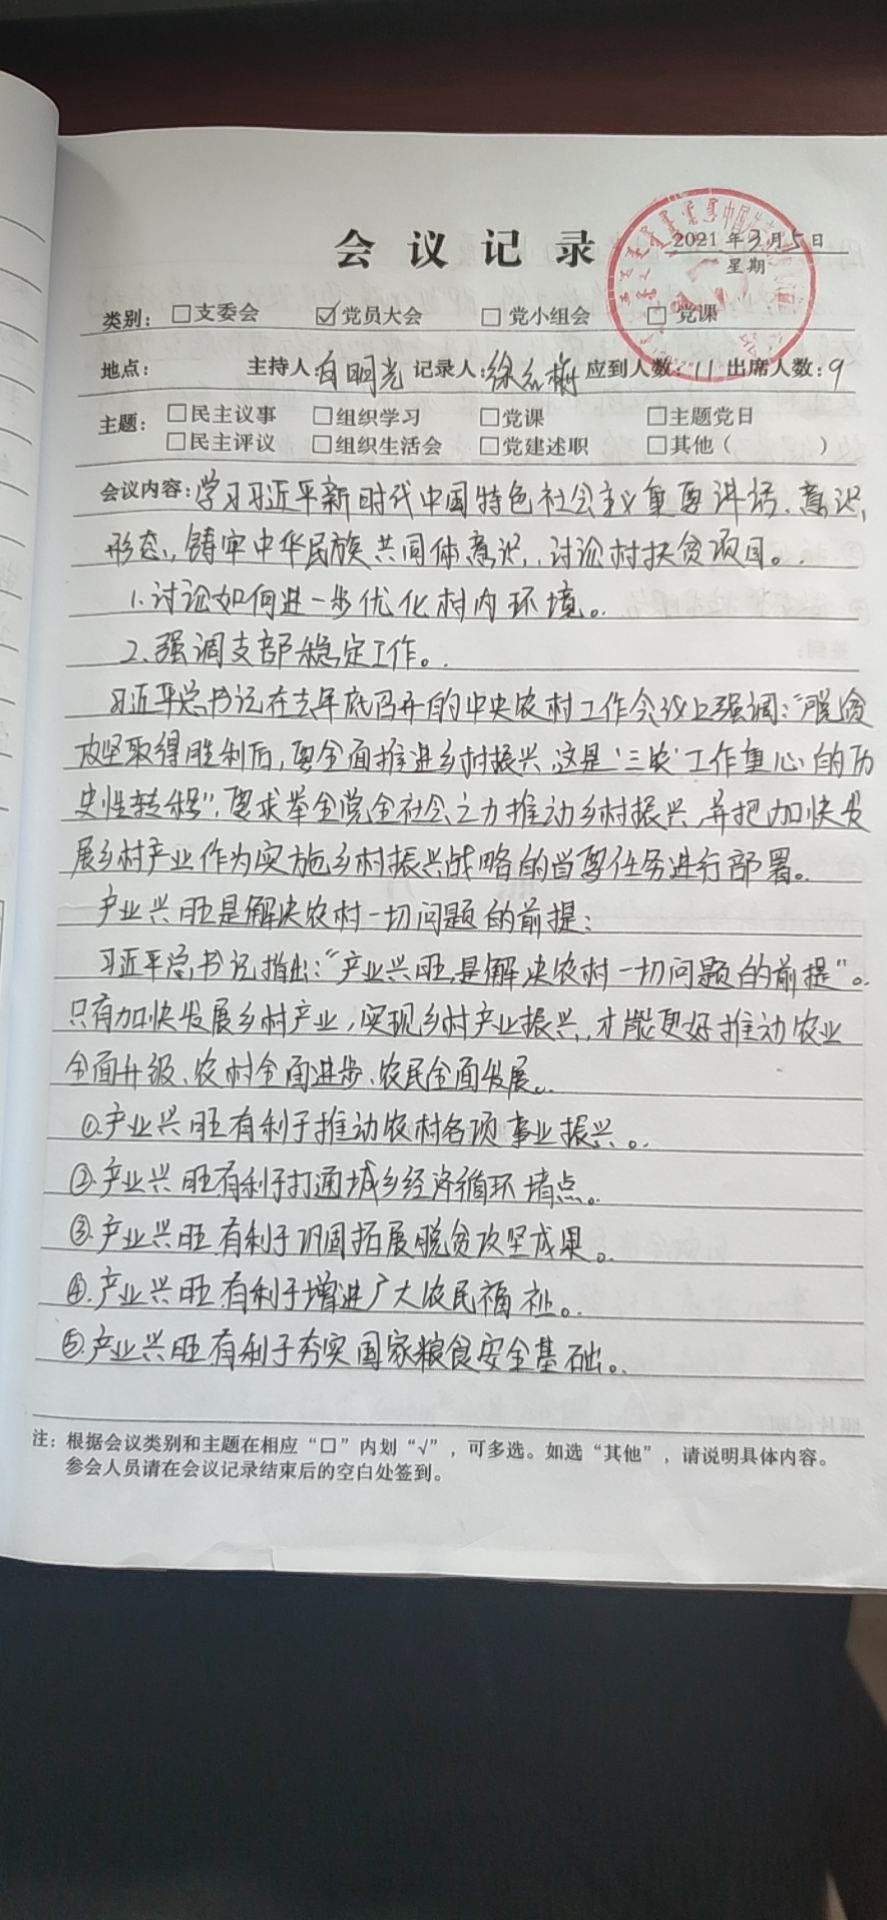 会议记录
2021年3月5日
星期
类别：□支委会 ☑党员大会 □党小组会 □党课
地点： 主持人 白明光 记录人：徐 梅 应到人数：11 出席人数：9
主题：□民主议事 □组织学习 □党课 □主题党日
□民主评议 □组织生活会 □党建述职 □其他（ ）
会议内容：学习习近平新时代中国特色社会主义重要讲话、意识
形态，铸牢中华民族共同体意识，讨论村扶贫项目。
1.讨论如何进一步优化村内环境。
2.强调支部稳定工作。
习近平总书记在去年底召开的中央农村工作会议上强调："脱贫
攻坚取得胜利后，要全面推进乡村振兴，这是'三农'工作重心的历
史性转移"，要求举全党全社会之力推动乡村振兴，并把加快发
展乡村产业作为实施乡村振兴战略的首要任务进行部署。
产业兴旺是解决农村一切问题的前提：
习近平总书记指出："产业兴旺，是解决农村一切问题的前提"。
只有加快发展乡村产业，实现乡村产业振兴，才能更好推动农业
全面升级、农村全面进步、农民全面发展。
①产业兴旺有利于推动农村各项事业振兴。
②产业兴旺有利于打通城乡经济循环堵点。
③产业兴旺有利于巩固拓展脱贫攻坚成果。
④产业兴旺有利于增进广大农民福祉。
⑤产业兴旺有利于夯实国家粮食安全基础。
注：根据会议类别和主题在相应“□”内划“√”，可多选。如选“其他”，请说明具体内容。
参会人员请在会议记录结束后的空白处签到。